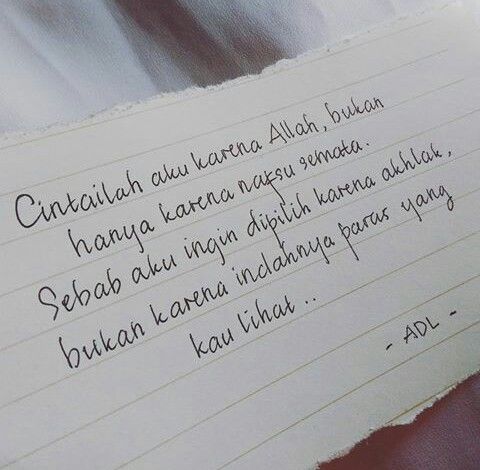 Cintailah aku karena Allah, bukan
hanya karena nafsu semata.
Sebab aku ingin dipilih karena akhlak,
bukan karena indahnya paras yang
kau lihat ..
- ADL -